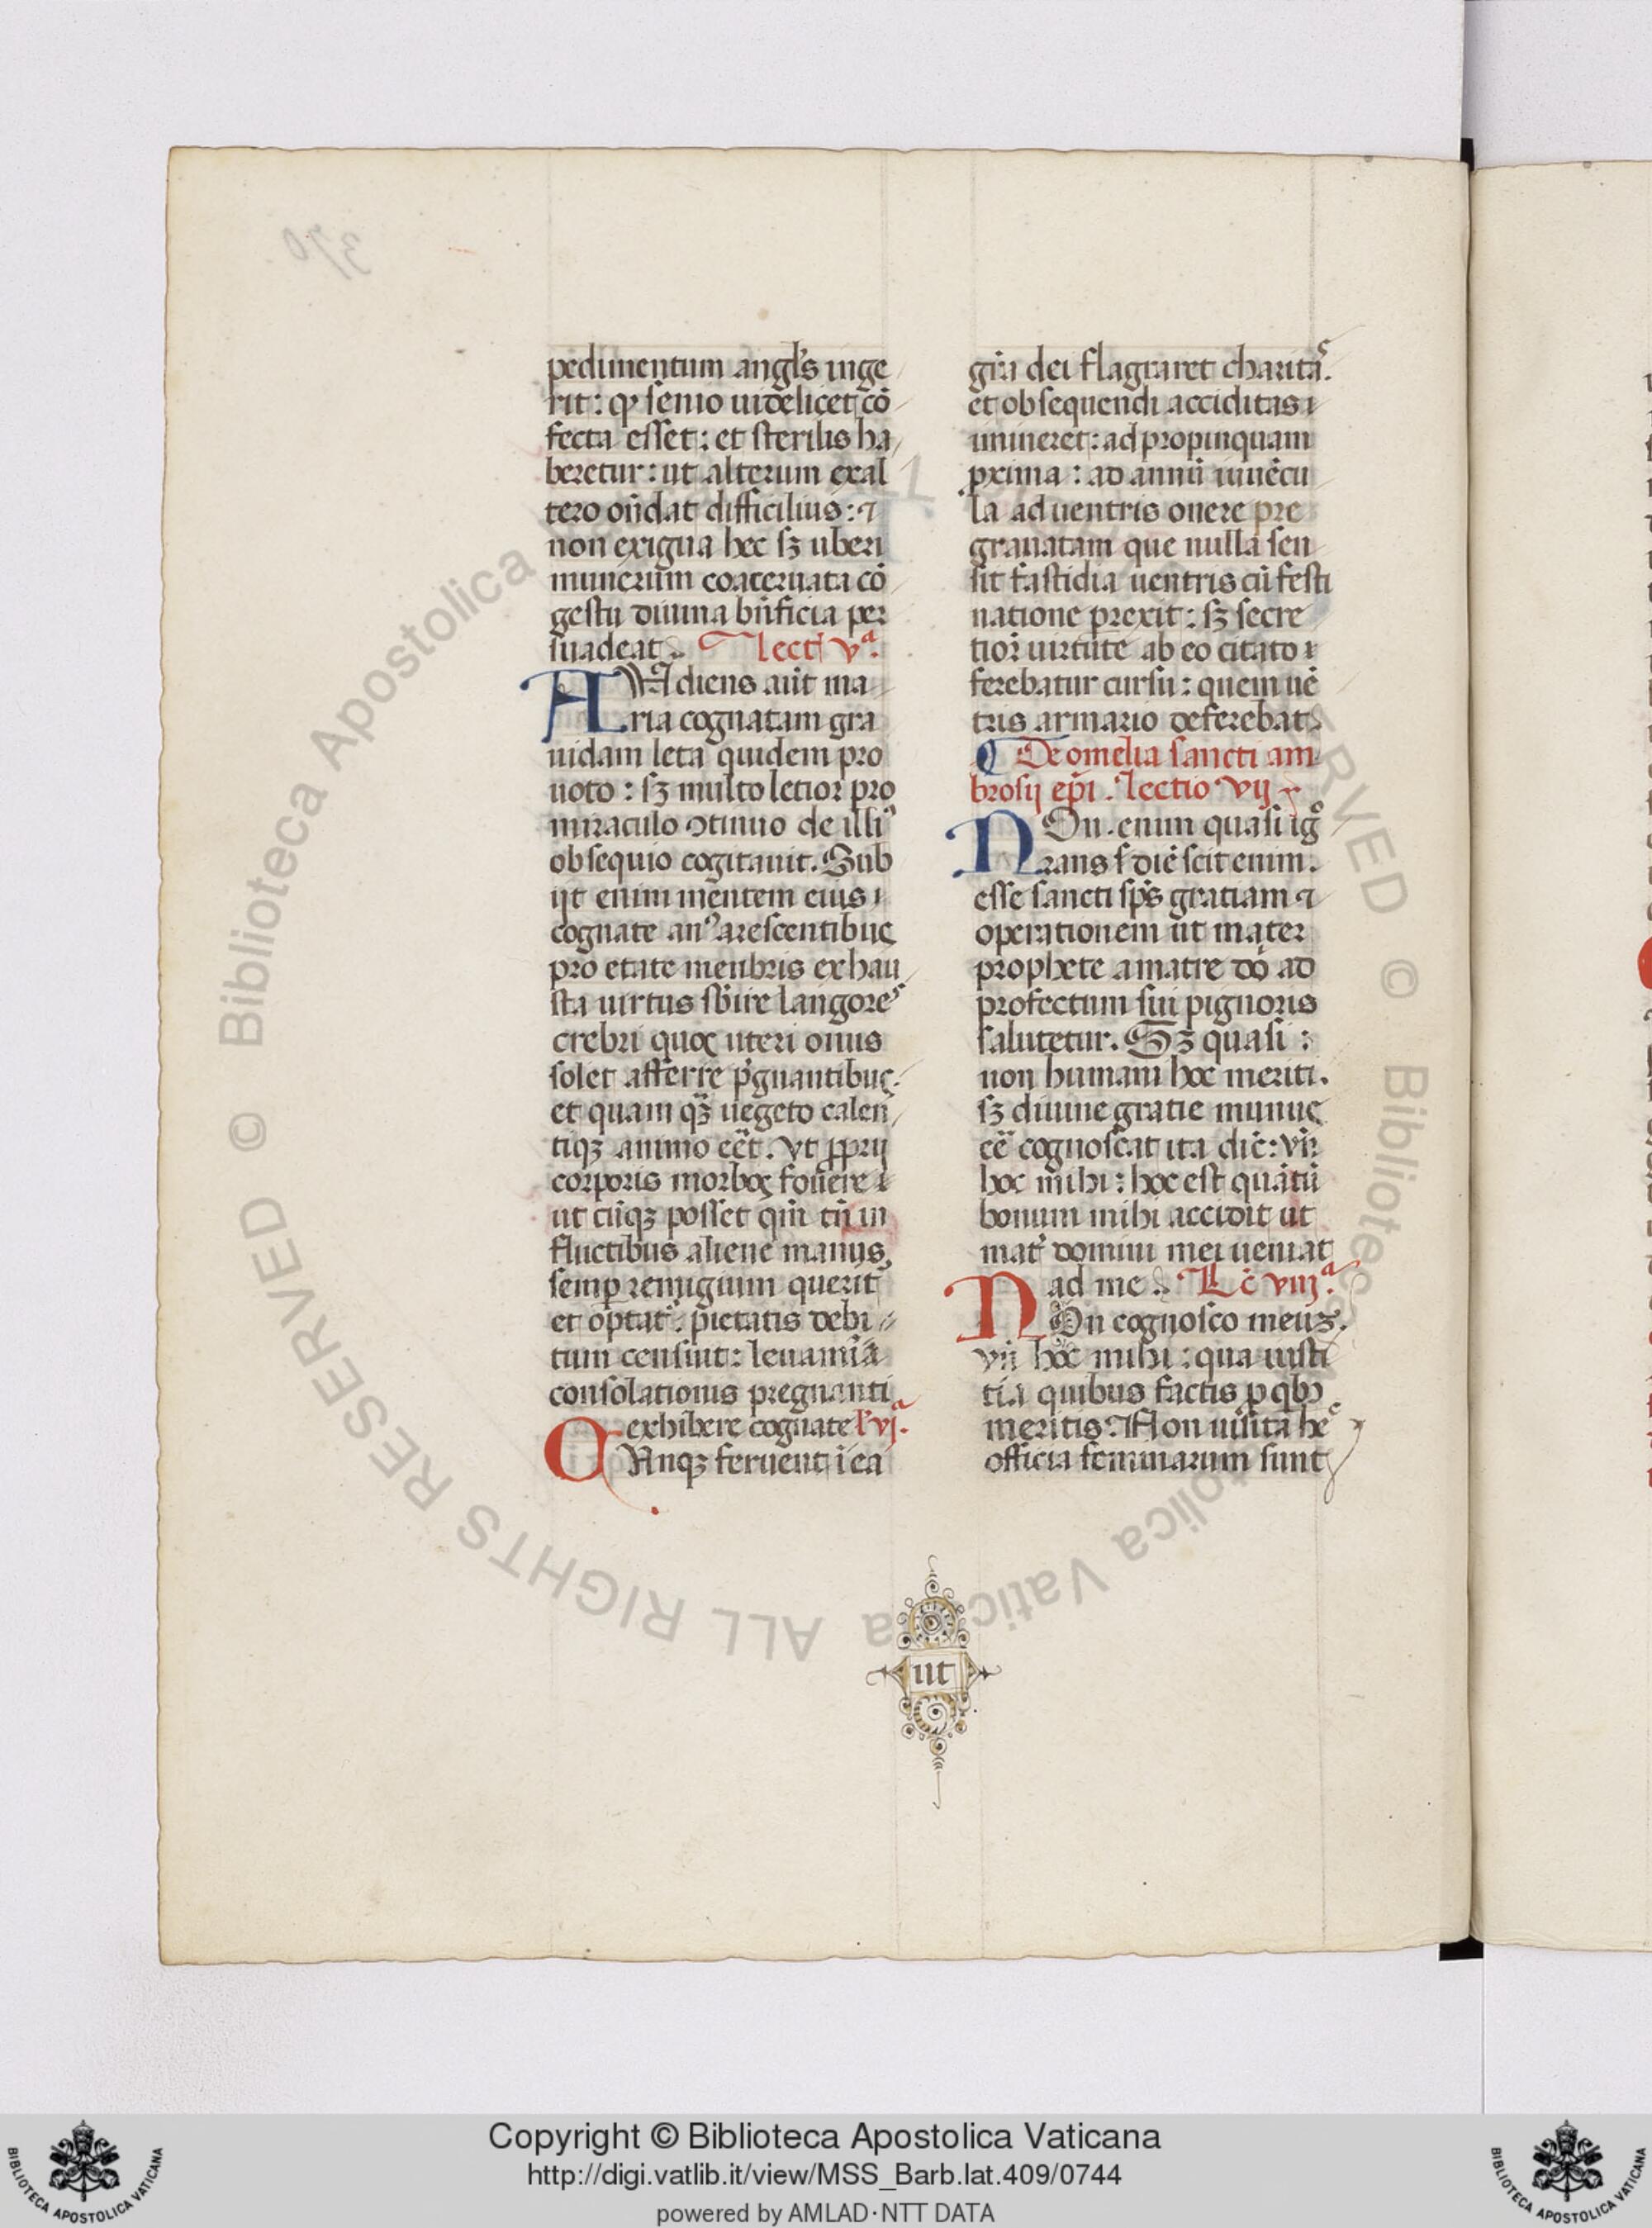 370
pedimentum angl's inge
rit: qꝫ senio uidelicet cō
fecta esset: et sterilis ha
beretur: ut alterum exal
tero oñdat difficilius: ⁊
non exigua hec sꝫ uberi
munerum coaceruata cō
gestu diuina bñficia per
suadeat. lect' vᵃ.
AUdiens aūt ma
ria cognatam gra
uidam leta quidem pro
uoto: sꝫ multo letior pro
miraculo ꝯtinuo de illiꝰ
obsequio cogitauit. Sub
ijt enim mentem eius
cognate anꝰ arescentibus
pro etate menbris exhau
sta uirtus sb̄ire langores
crebri quos uteri onus
solet afferre p̄gnantibus.
et quam qꝫ uegeto calen
tiqꝫ animo eēt. Vt ꝓprij
corporis morbos fouere
ut cūqꝫ posset qm̄ tn̄ in
fluctibus aliene manus
semꝑ remigium querit
et optat̉. pietatis debi
tum censuit: leuamīa
consolationis pregnanti
exhibere cognate l' vjᵃ.
QAnqꝫ feruent ī ea
gr̄a dei flagraret charitaˢ.
et obsequendi acciditas
inineret: ad propinquam
ꝓxima: ad annū iuuēcu
la ad uentris onere pre
grauatam que nulla sen
sit fastidia uentris cū festi
natione prexit: sꝫ secre
tior̄ uirtute ab eo citato
ferebatur cursu: quem uē
tris armario deferebat
De omelia sancti am
brosij ep̄i. lectio vij
NOn enim quasi igᵒ
rans s' diē scit enim.
esse sancti sp̄s gratiam ⁊
operationem ut mater
prophete a matre dō ad
profectum sui pignoris
salutetur. Sꝫ quasi:
non humani hoc meriti.
sꝫ diuine gratie munus
cē cognoscat ita dic̄: vñ
hoc mihi: hoc est quātū
bonum mihi accidit ut
mat̉ domini mei ueniat
ad me. Lc̄ viijᵃ.
NOn cognosco meuꝫ.
vñ hoc mihi: qua iusti
tia quibus factis ꝓ qbꝫ
meritis. Non uisita heᶜ
officia feminarum sunt
ut
© Biblioteca Apostolica Vaticana ALL RIGHTS RESERVED
Copyright © Biblioteca Apostolica Vaticana
http://digi.vatlib.it/view/MSS_Barb.lat.409/0744
powered by AMLAD·NTT DATA
BIBLIOTECA APOSTOLICA VATICANA
BIBLIOTECA APOSTOLICA VATICANA